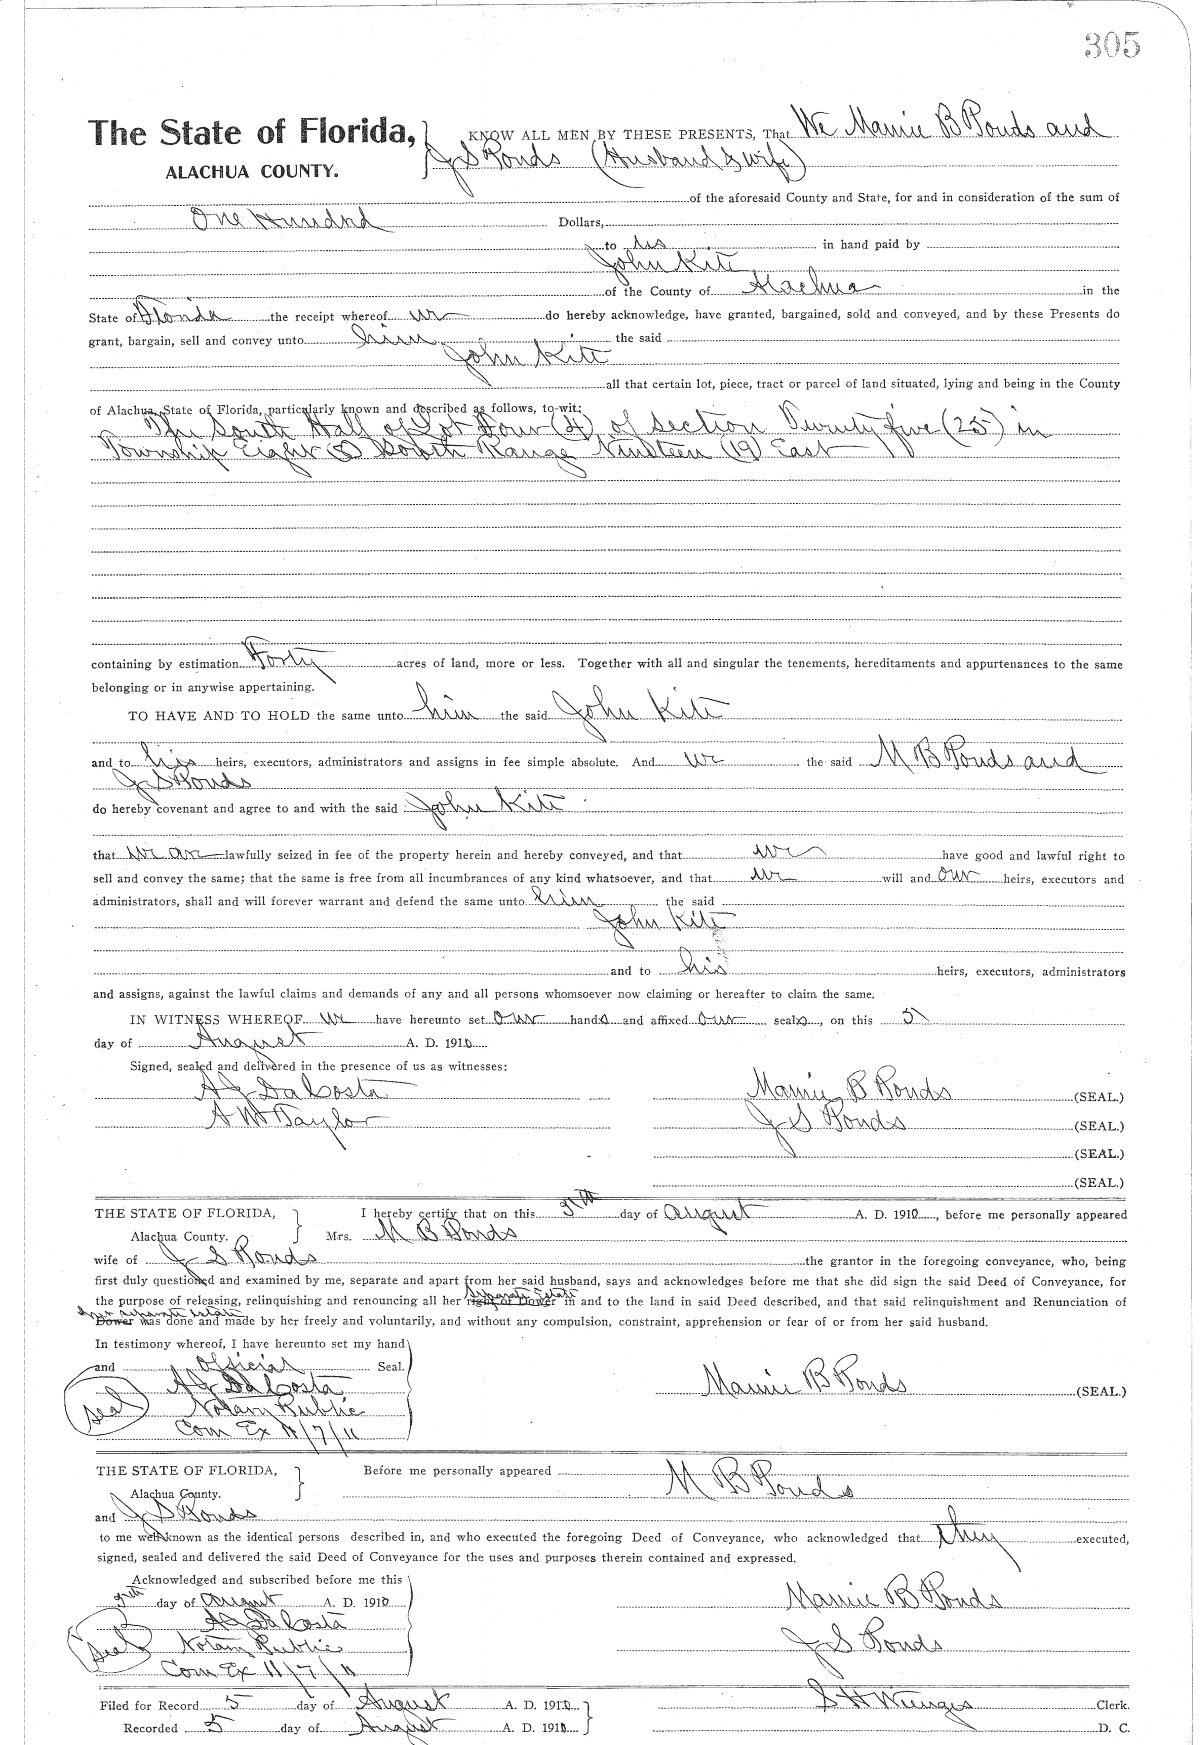 305
The State of Florida, KNOW ALL MEN BY THESE PRESENTS, That We Mamie B Ponds and
ALACHUA COUNTY. J S Ponds (Husband & wife)
of the aforesaid County and State, for and in consideration of the sum of
One Hundrd Dollars,
to us in hand paid by
John Kite
of the County of Alachua in the
State of Florida the receipt whereof we do hereby acknowledge, have granted, bargained, sold and conveyed, and by these Presents do
grant, bargain, sell and convey unto him the said
John Kite
all that certain lot, piece, tract or parcel of land situated, lying and being in the County
of Alachua, State of Florida, particularly known and described as follows, to-wit:
The South Half of Lot Four (4) of section Twenty five (25) in
Township Eight (8) South Range Nineteen (19) East
containing by estimation Forty acres of land, more or less. Together with all and singular the tenements, hereditaments and appurtenances to the same
belonging or in anywise appertaining.
TO HAVE AND TO HOLD the same unto him the said John Kite
and to his heirs, executors, administrators and assigns in fee simple absolute. And we the said M B Ponds and
J S Ponds
do hereby covenant and agree to and with the said John Kite
that we are lawfully seized in fee of the property herein and hereby conveyed, and that we have good and lawful right to
sell and convey the same; that the same is free from all incumbrances of any kind whatsoever, and that we will and our heirs, executors and
administrators, shall and will forever warrant and defend the same unto him the said
John Kite
and to his heirs, executors, administrators
and assigns, against the lawful claims and demands of any and all persons whomsoever now claiming or hereafter to claim the same.
IN WITNESS WHEREOF we have hereunto set our hands and affixed our seals, on this 5
day of August A. D. 1910
Signed, sealed and delivered in the presence of us as witnesses:
A J DaCosta Mamie B Ponds (SEAL.)
A M Taylor J S Ponds (SEAL.)
(SEAL.)
(SEAL.)
THE STATE OF FLORIDA, I hereby certify that on this 5th day of August A. D. 1910, before me personally appeared
Alachua County. Mrs. M B Ponds
wife of J S Ponds the grantor in the foregoing conveyance, who, being
first duly questioned and examined by me, separate and apart from her said husband, says and acknowledges before me that she did sign the said Deed of Conveyance, for
the purpose of releasing, relinquishing and renouncing all her right of Dower separate Estate in and to the land in said Deed described, and that said relinquishment and Renunciation of
Dower her separate estate was done and made by her freely and voluntarily, and without any compulsion, constraint, apprehension or fear of or from her said husband.
In testimony whereof, I have hereunto set my hand
and official Seal.
A J DaCosta Mamie B Ponds (SEAL.)
seal Notary Public
Com Ex 11/7/11
THE STATE OF FLORIDA, Before me personally appeared M B Ponds
Alachua County.
and J S Ponds
to me well known as the identical persons described in, and who executed the foregoing Deed of Conveyance, who acknowledged that they executed,
signed, sealed and delivered the said Deed of Conveyance for the uses and purposes therein contained and expressed.
Acknowledged and subscribed before me this
5th day of August A. D. 1910 Mamie B Ponds
A J DaCosta
seal Notary Public J S Ponds
Com Ex 11/7/11
Filed for Record 5 day of August A. D. 1910 S H Wienges Clerk.
Recorded 5 day of August A. D. 1910 D. C.